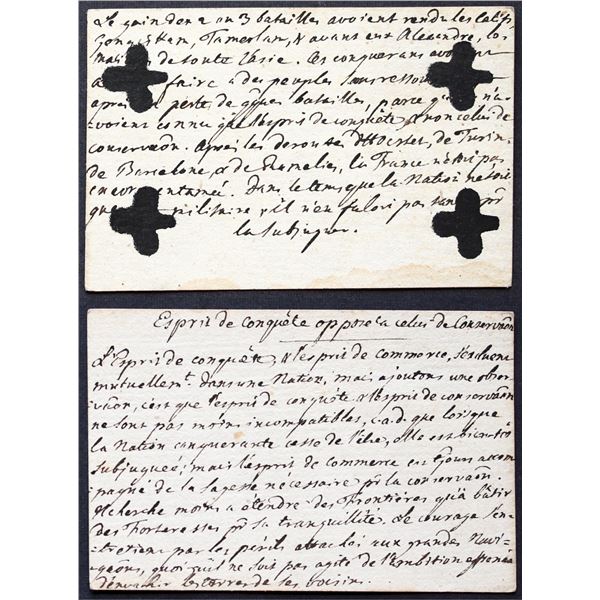 Le gain d'on 2 ou 3 batailles avoient rendu les Calif,
Tamerlan, & avant eux Alexandre, les
de toute l'asie. Ces conquerans
faire a des peuples sans ressou
après perte de batailles, parce n'a
voient connu que l'esprit de conquête & non celui de
conservãon. Après les deroutes d'Hocstet, de Turin
de Barcelone, & de Ramelies, la France n'étoit pas
encore entamée. Dans le tems que la Nation
militaire & il n'en faloit pas tant pr
la subjuguer.
Esprit de conquête opposé à celui de Conservãon
L'Esprit de conquête, & l'esprit de commerce, s'excluent
mutuellemt. dans une Nation, mais ajoutons une obser-
vãon, c'est que l'esprit de conquête & l'esprit de conservãon
ne sont pas moins incompatibles, c.a.d. que lorsque
la Nation conquerante cesse de l'être, elle est bientôt
subjuguée; mais l'esprit de commerce est tjours accom-
pagné de la sagesse nécessaire pr la conservãon.
Il cherche moins a étendre des Frontières qu'à bâtir
des Forteresses pr sa tranquillité. Le courage s'en-
-tretient par les périls attachés aux grandes Navi-
-gãons, quoi qu'il ne soit pas agité de l'ambition effrénée
d'envahir les terres de ses voisins.